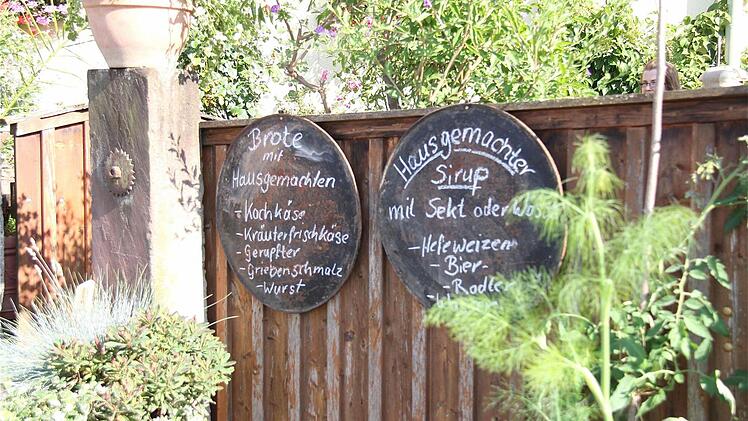 Brote
mit
Hausgemachten
- Kochkäse
- Kräuterfrischkäse
- Gerupfter
- Griebenschmalz
- Wurst
Hausgemachter
Sirup
mit Sekt oder
- Hefeweizen
- Bier -
- Radler